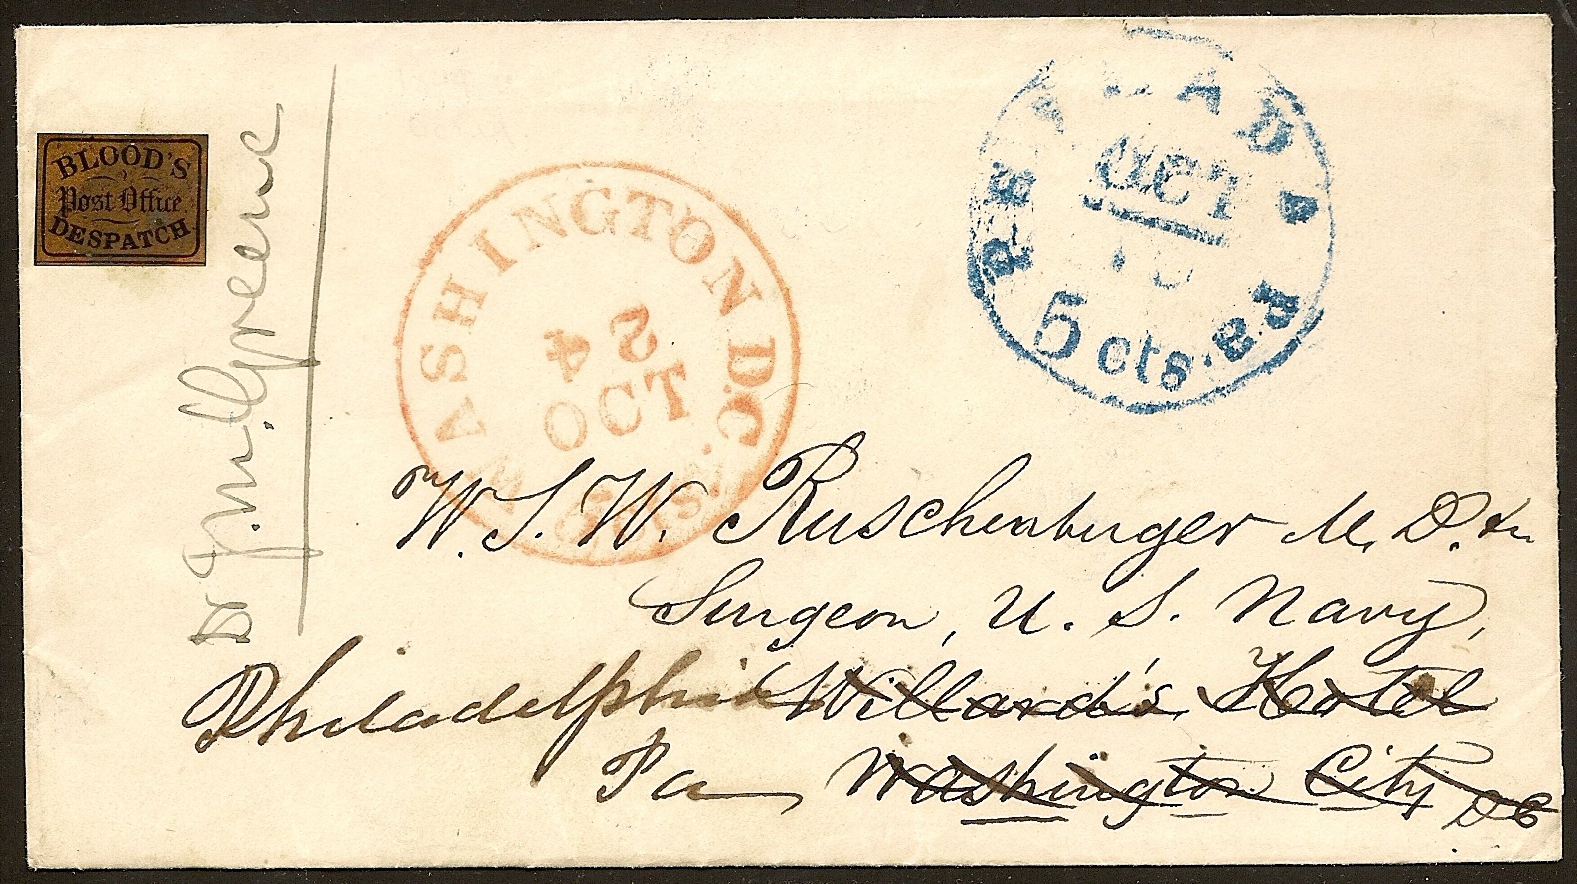 BLOOD'S
Post Office
DESPATCH
WASHINGTON D.C.
24
OCT
5 cts.
OCT
5 cts. Pa
Dr J. M. Greene
W. S. W. Ruschenburger M. D.
Surgeon, U. S. Navy,
Philadelphia Willard's Hotel
Pa Washington City DC